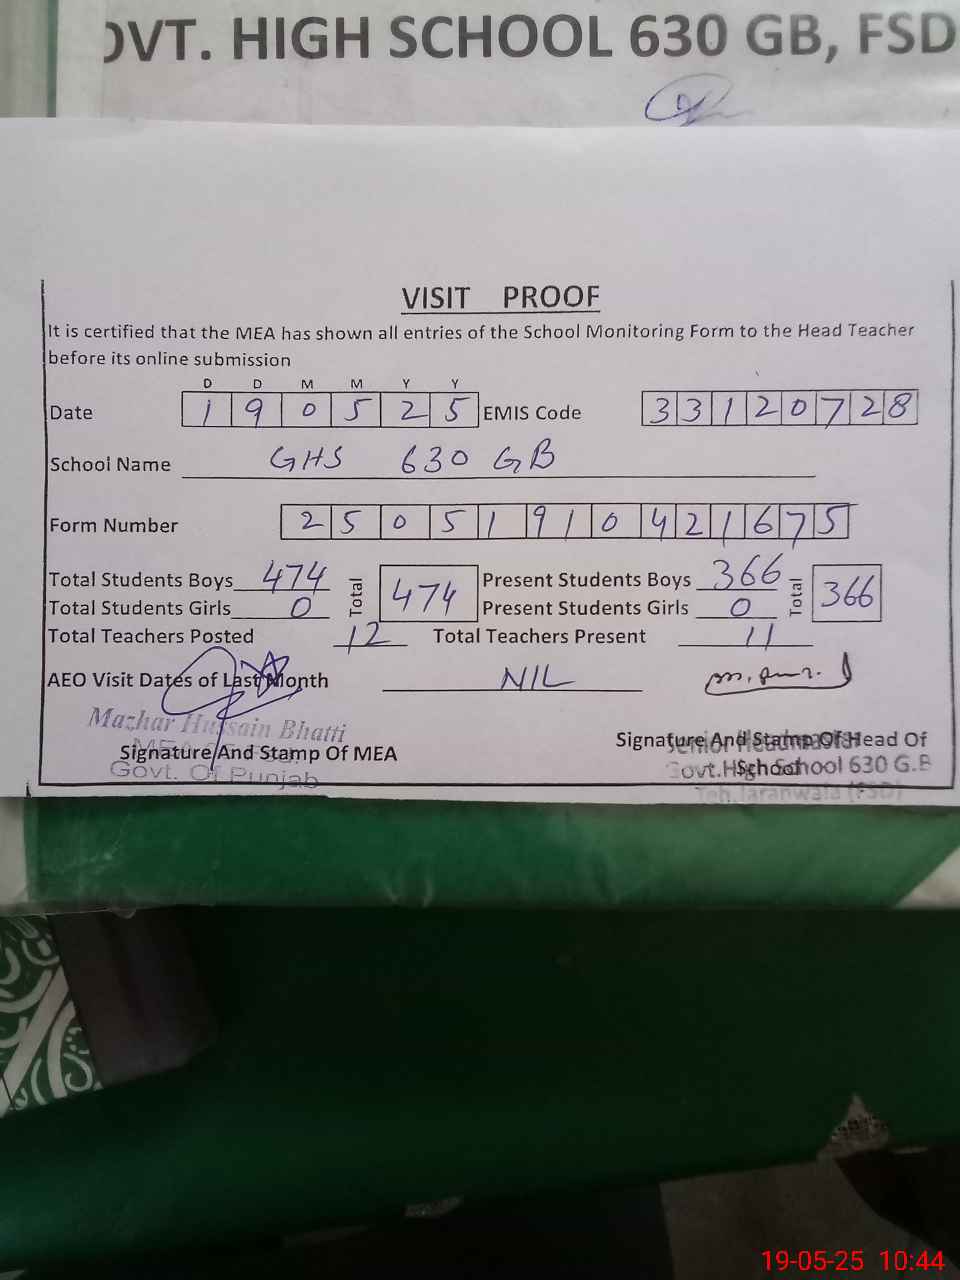 OVT. HIGH SCHOOL 630 GB, FSD
VISIT PROOF
It is certified that the MEA has shown all entries of the School Monitoring Form to the Head Teacher
before its online submission
D D M M Y Y
Date 1 9 0 5 2 5 EMIS Code 3 3 1 2 0 7 2 8
School Name GHS 630 GB
Form Number 2 5 0 5 1 9 1 0 4 2 1 6 7 5
Total Students Boys 474 Total 474 Present Students Boys 366 Total 366
Total Students Girls 0 Present Students Girls 0
Total Teachers Posted 12 Total Teachers Present 11
AEO Visit Dates of Last Month NIL
Mazhar Hussain Bhatti
Signature And Stamp Of MEA
Govt. Of Punjab
Signature And Stamp Of Head Of
School
Senior Headmaster
Govt. High School 630 G.B
Teh. Jaranwala (FSD)
19-05-25 10:44